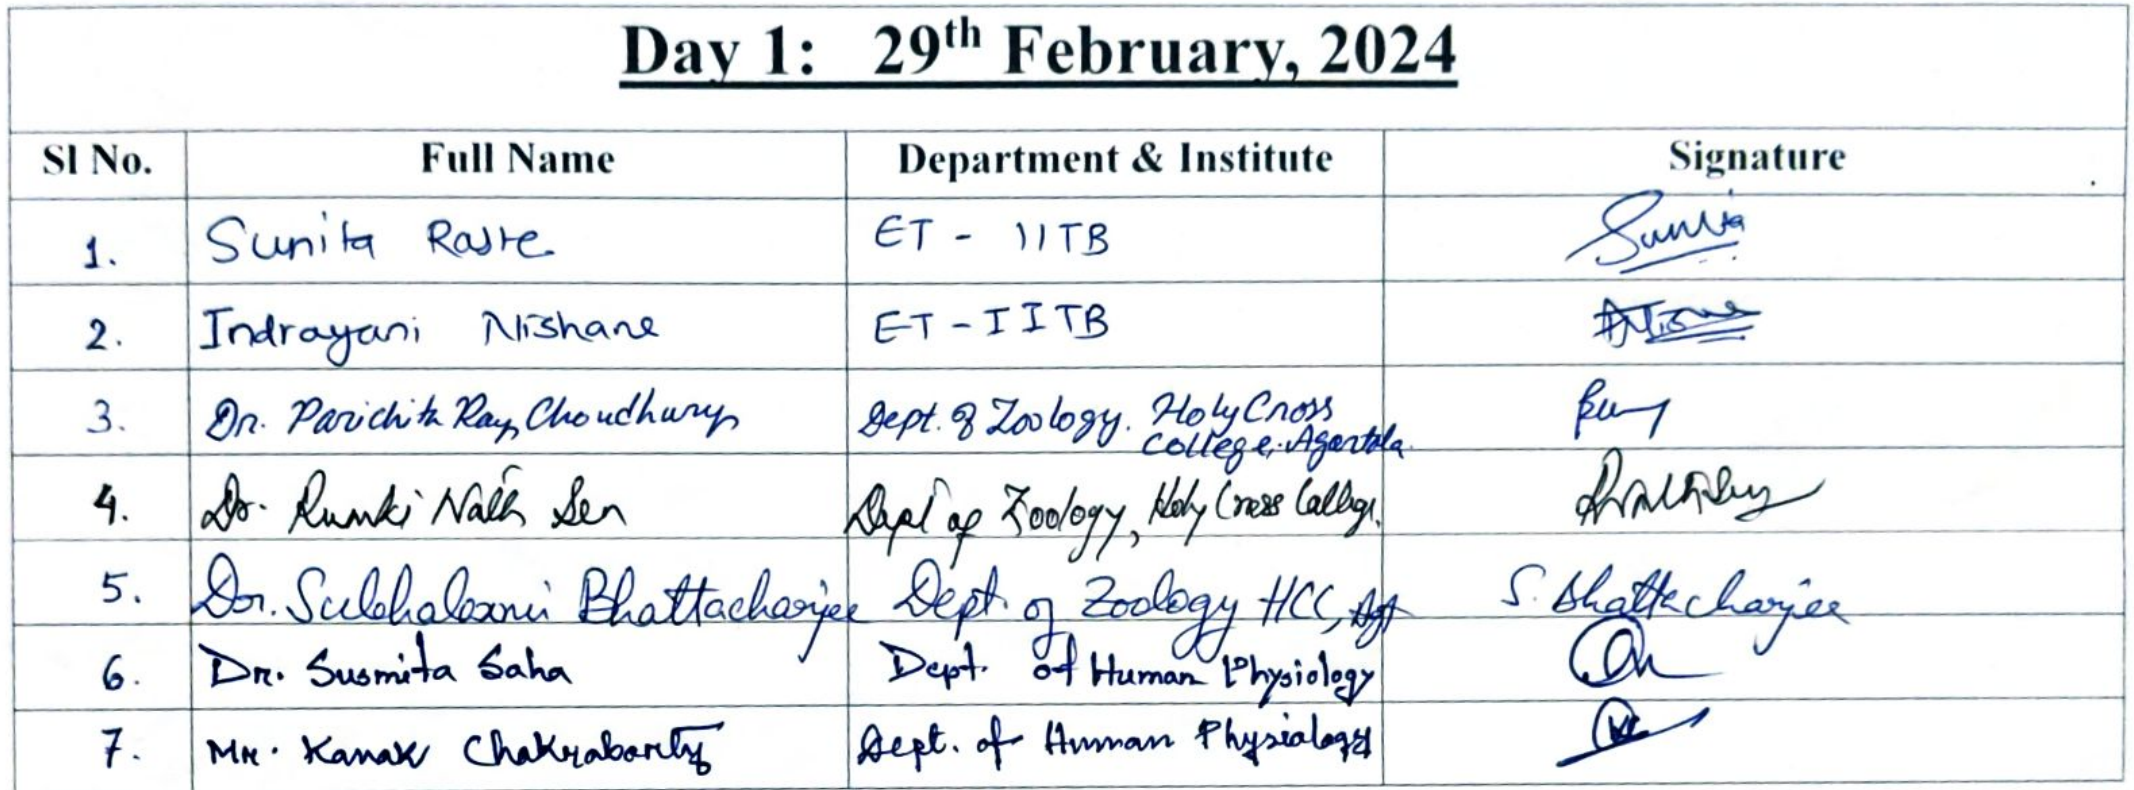 Day 1: 29th February, 2024
Sl No. Full Name Department & Institute Signature
1. Sunita Raste ET - IITB Sunita
2. Indrayani Nishane ET - IITB
3. Dr. Parichita Ray Choudhury Dept. of Zoology. Holy Cross
College, Agartala
4. Dr. Rumki Nath Sen Dept of Zoology, Holy Cross College.
5. Dr. Subhalaxmi Bhattacharjee Dept. of Zoology HCC, Agt S. Bhattacharjee
6. Dr. Susmita Saha Dept. of Human Physiology
7. Mr. Kanak Chakraborty Dept. of Human Physiology